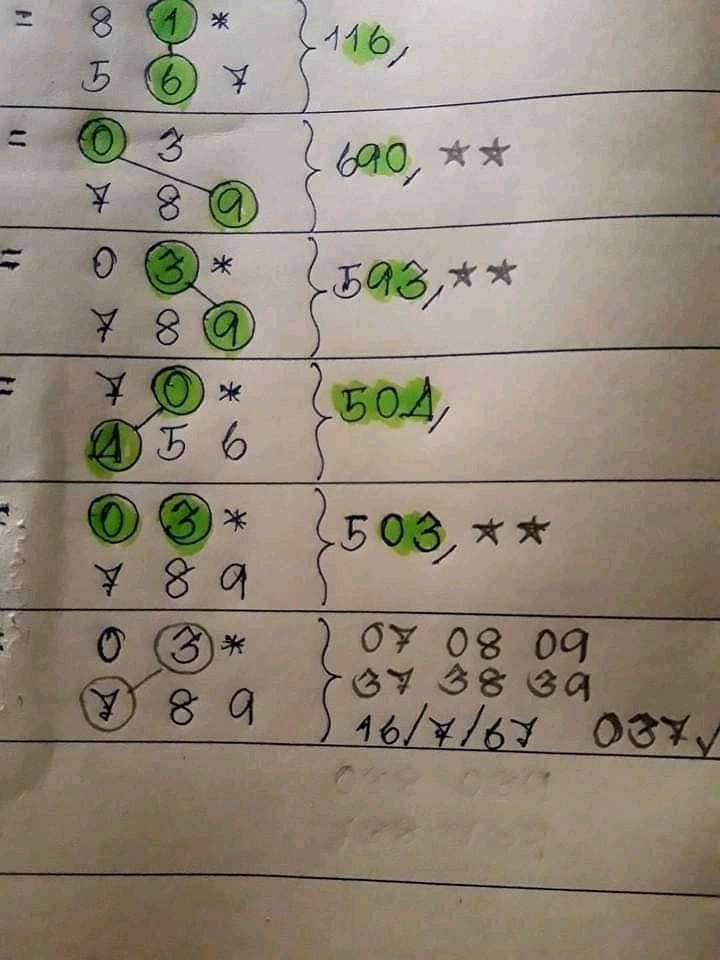 = 8 1 * } 116,
5 6 7
= 0 3 } 690, ★★
7 8 9
= 0 3 * } 593, ★★
7 8 9
= 7 0 * } 504,
4 5 6
0 3 * } 503, ★★
7 8 9
0 3 * } 07 08 09
37 38 39
7 8 9 16/7/67 037✓